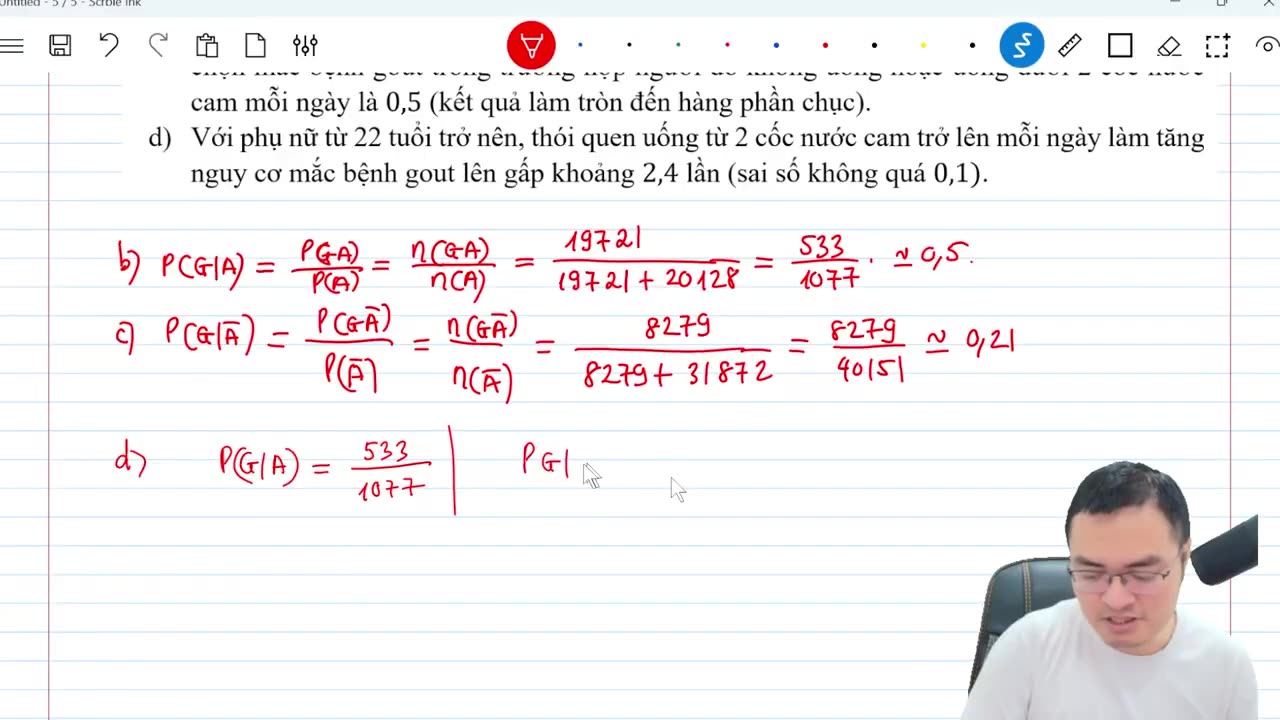 Untitled - 5 / 5 - Scrble Ink
chọn mắc bệnh gout trong trường hợp người đó không uống hoặc uống dưới 2 cốc nước
cam mỗi ngày là 0,5 (kết quả làm tròn đến hàng phần chục).
d) Với phụ nữ từ 22 tuổi trở nên, thói quen uống từ 2 cốc nước cam trở lên mỗi ngày làm tăng
nguy cơ mắc bệnh gout lên gấp khoảng 2,4 lần (sai số không quá 0,1).
b) P(G|A) = P(GA)/P(A) = n(GA)/n(A) = 19721/(19721 + 20128) = 533/1077 . ≃ 0,5.
c) P(G|Ā) = P(GĀ)/P(Ā) = n(GĀ)/n(Ā) = 8279/(8279 + 31872) = 8279/40151 ≃ 0,21
d) P(G|A) = 533/1077 | P G|